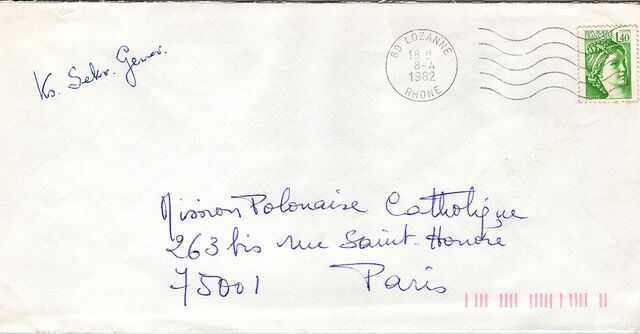 Ks. Sekr. Gener.
69 LOZANNE
18 H
8-4
1982
RHONE
1,40
Mission Polonaise Catholique
263 bis rue Saint-Honore
75001 Paris